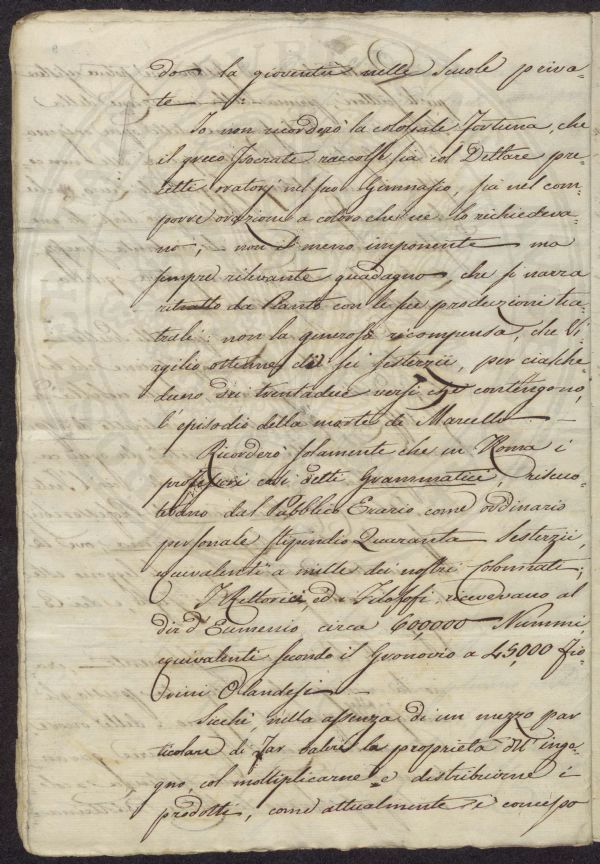 do la gioventù nelle Scuole priva-
te
Io non ricorderò la colossale fortuna, che
il greco Isocrate raccolse sia col Dettare pre-
cetti oratorj nel suo Gimnasio, sia nel com-
porre orazione a coloro che ne lo richiedeva-
no; non il meno imponente ma
sempre rilevante guadagno, che si narra
ritratto da Plauto con le sue produzioni tea-
trali: non la generosa ricompensa, che Vi-
rgilio ottenne di sei sesterzii, per ciasche-
duno dei trentadue versi che contengono
l'episodio della morte di Marcello
Ricorderò solamente che in Roma i
professori così detti Grammatici, riscuo-
tevano dal Pubblico Erario come ordinario
personale stipendio Quaranta Sesterzii,
equivalenti a mille dei nostri Colonnati;
I Rettorici, ed i Filosofi ricevevano al
dir d'Eumenio circa 600,000 Nummi,
equivalenti secondo il Gronovio a 45,000 Fio-
rini Olandesi
Sicchè, nella assenza di un mezzo par
ticolare di far valere la proprietà dell'inge-
gno, col moltiplicarne e distribuirne i
prodotti, come attualmente è concesso